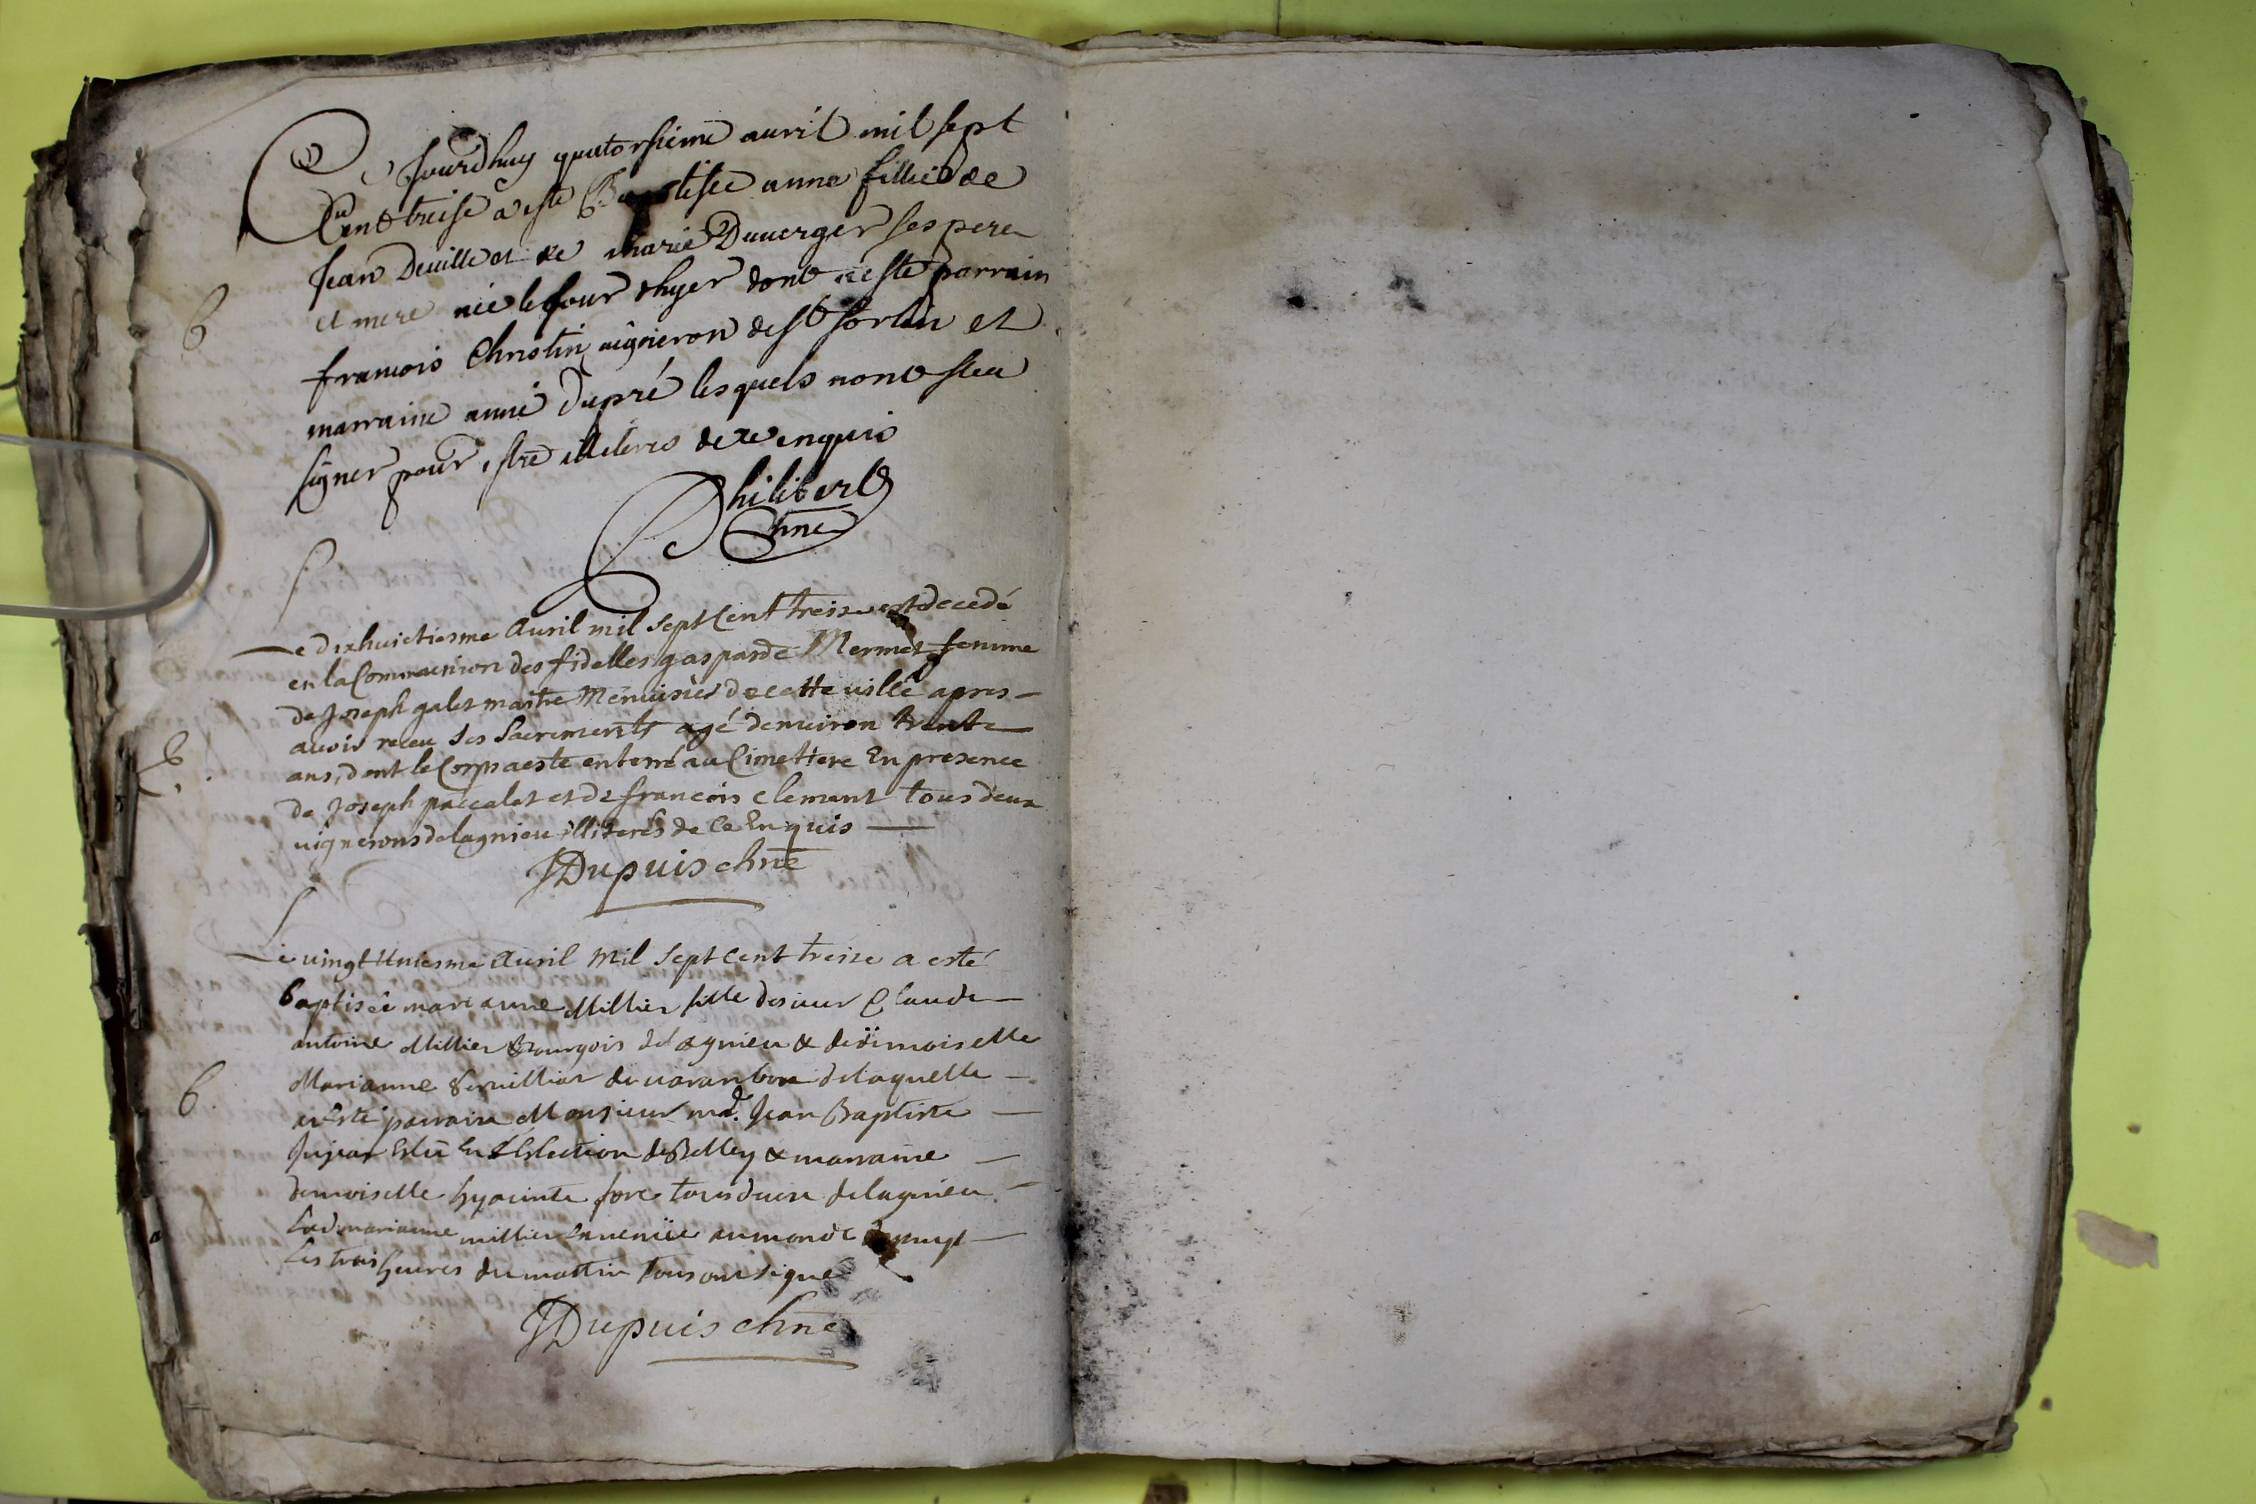 Ce Jourdhuy quatorsieme avril mil sept
Cent treise a este Baptisée anne fillie de
Jean Deville et de marie Duverger ses pere
et mere née le Jour dhyer dont a este parrain
B
francois Christin vigneron de St Sorlin et
marraine anne Dupré lesquels nont sceu
signer pour estre illiteres de ce enquis
Philibert
chne
Le dixhuictiesme Avril mil sept Cent treize est decedé
en la Communion des fidelles gasparde Mermet femme
de Joseph galet maitre Menuisier de cette ville apres
avoir receu ses Sacrements agé denviron trente
ans, dont le Corps a este enterré au Cimettere En presence
de Joseph paccalet et de francois Clement tous deux
vignerons de lagnieu illiterés de Ce Enquis
JDupuis chne
Le vingt Uniesme Avril Mil Sept Cent treize a esté
baptisée mari anne Millier fille de sieur Claude
antoine Millier Bourgois de lagnieu & de demoiselle
Marianne de varanbon de laquelle
B.
a esté parrain Monsieur md. Jean Baptiste
Eslu En l'Eslection de Belley & marraine
demoiselle hyacinte tous deux de lagnieu
Lad marianne millier au monde
les trois heures du mattin tous ont signé
JDupuis chne